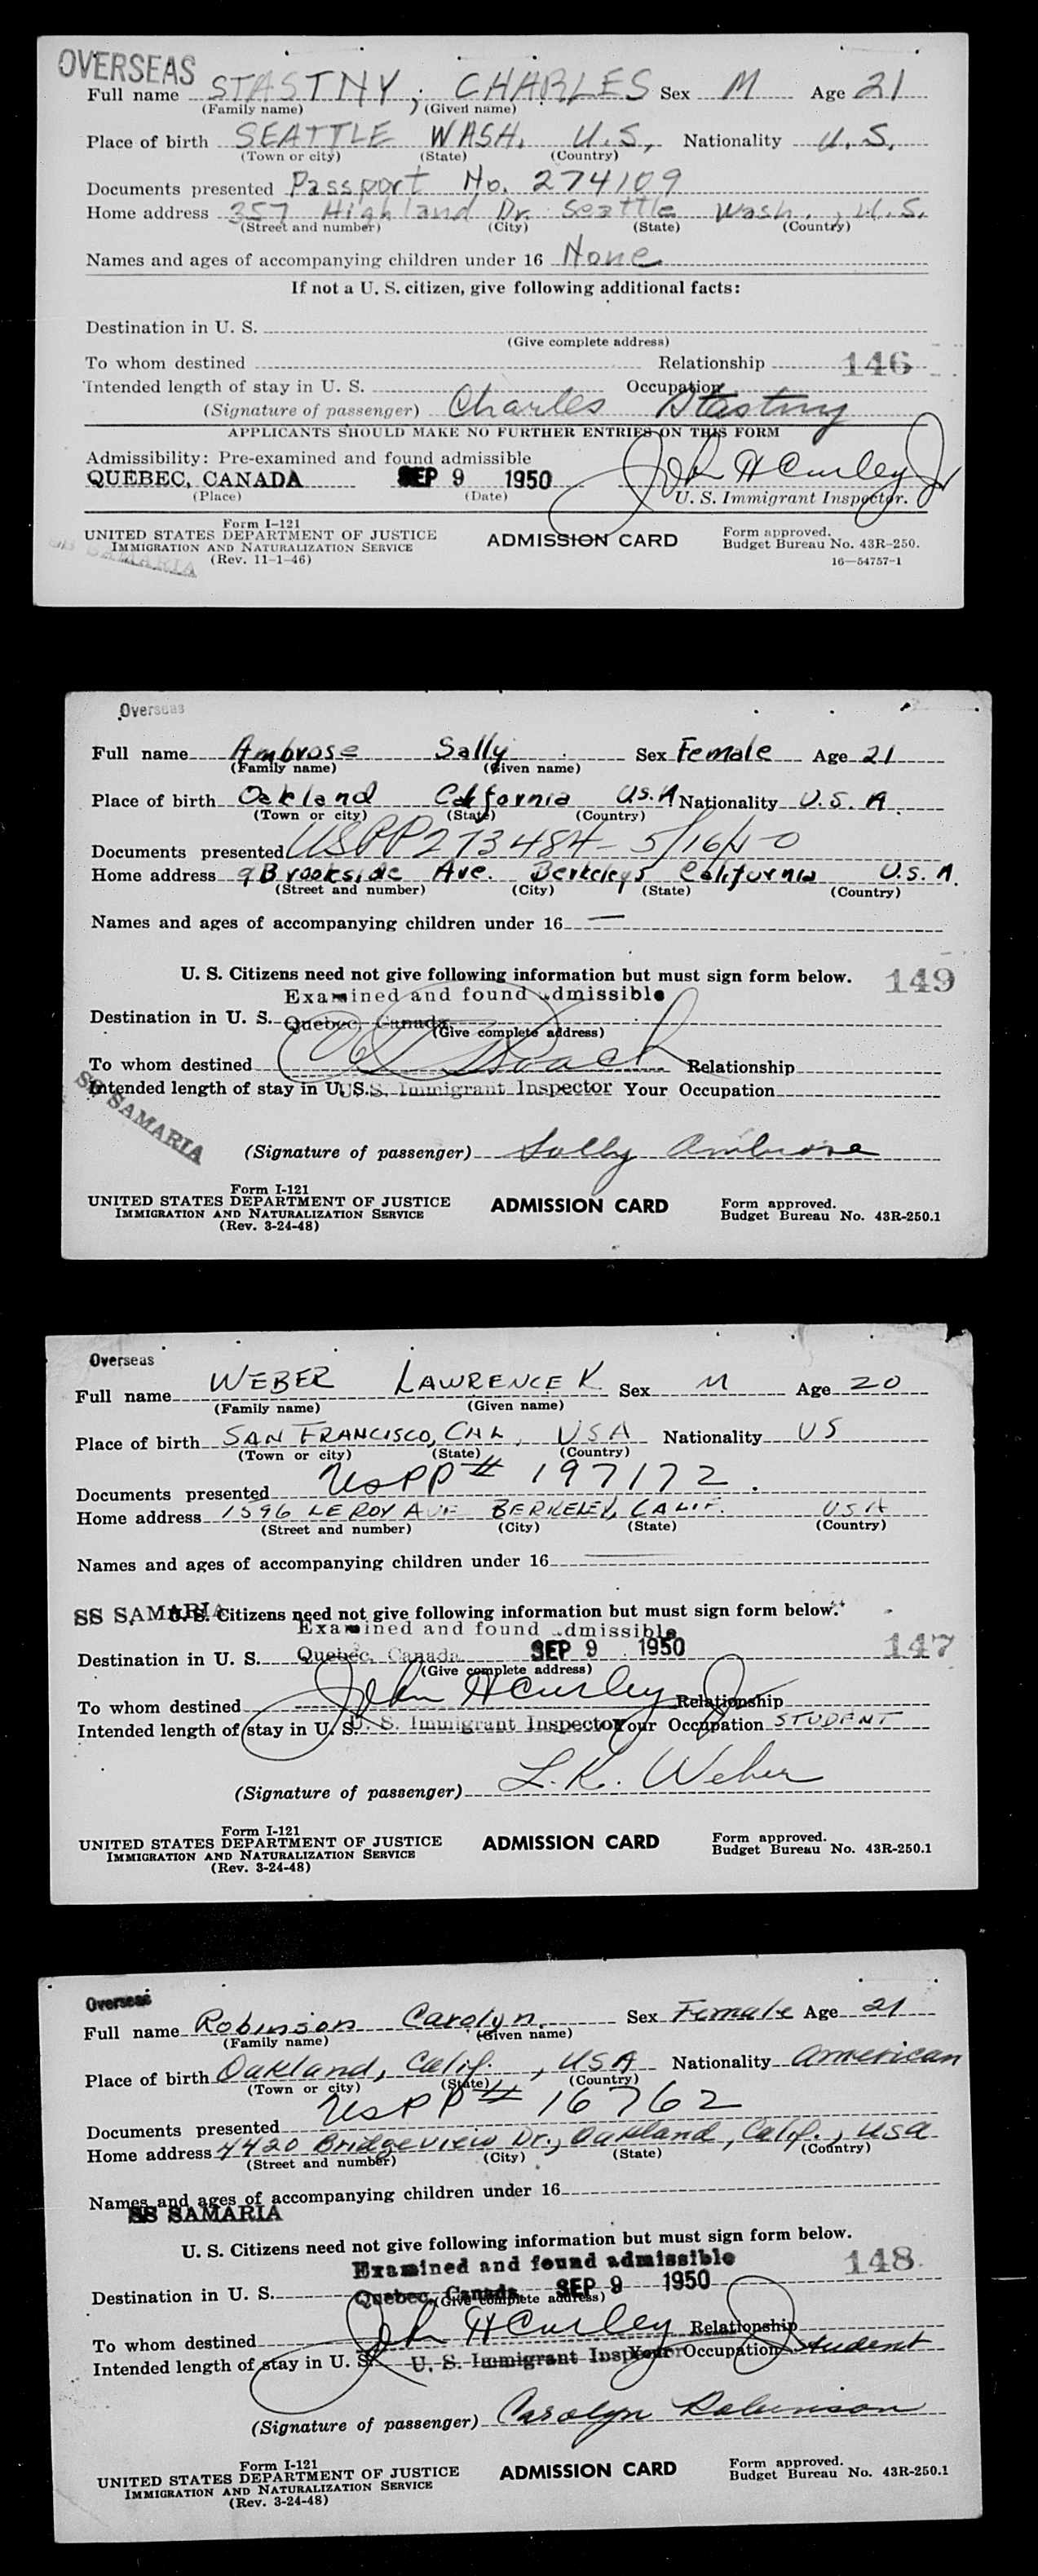 OVERSEAS
Full name STASTNY, CHARLES Sex M Age 21
(Family name) (Given name)
Place of birth SEATTLE WASH. U.S. Nationality U.S.
(Town or city) (State) (Country)
Documents presented Passport No. 274109
Home address 357 Highland Dr. Seattle Wash., U.S.
(Street and number) (City) (State) (Country)
Names and ages of accompanying children under 16 None
If not a U. S. citizen, give following additional facts:
Destination in U. S.
(Give complete address)
To whom destined Relationship 146
Intended length of stay in U. S. Occupation
(Signature of passenger) Charles Stastny
APPLICANTS SHOULD MAKE NO FURTHER ENTRIES ON THIS FORM
Admissibility: Pre-examined and found admissible
QUEBEC, CANADA SEP 9 1950 John H Curley Jr
(Place) (Date) U. S. Immigrant Inspector.
Form I-121
UNITED STATES DEPARTMENT OF JUSTICE ADMISSION CARD Form approved.
IMMIGRATION AND NATURALIZATION SERVICE Budget Bureau No. 43R-250.
SS SAMARIA (Rev. 11-1-46) 16—54757-1
Overseas
Full name Ambrose Sally Sex Female Age 21
(Family name) (Given name)
Place of birth Oakland California U.S.A Nationality U.S.A.
(Town or city) (State) (Country)
Documents presented USPP 273484 - 5/16/50
Home address 9 Brookside Ave. Berkeley 5 California U.S.A.
(Street and number) (City) (State) (Country)
Names and ages of accompanying children under 16 —
U. S. Citizens need not give following information but must sign form below. 149
Examined and found admissible
Destination in U. S. Quebec, Canada
(Give complete address)
To whom destined Relationship
Intended length of stay in U. S. U. S. Immigrant Inspector Your Occupation
SS SAMARIA
(Signature of passenger) Sally Ambrose
Form I-121
UNITED STATES DEPARTMENT OF JUSTICE ADMISSION CARD Form approved.
IMMIGRATION AND NATURALIZATION SERVICE Budget Bureau No. 43R-250.1
(Rev. 3-24-48)
Overseas
Full name WEBER LAWRENCE K. Sex M Age 20
(Family name) (Given name)
Place of birth SAN FRANCISCO, CAL, USA Nationality US
(Town or city) (State) (Country)
Documents presented USPP # 197172.
Home address 1596 LE ROY AVE BERKELEY, CALIF. USA
(Street and number) (City) (State) (Country)
Names and ages of accompanying children under 16 —
SS SAMARIA U. S. Citizens need not give following information but must sign form below.
Examined and found admissible 147
Destination in U. S. Quebec, Canada SEP 9 1950
(Give complete address)
To whom destined John H Curley Jr Relationship
Intended length of stay in U. S. U. S. Immigrant Inspector Your Occupation STUDENT
(Signature of passenger) L. K. Weber
Form I-121
UNITED STATES DEPARTMENT OF JUSTICE ADMISSION CARD Form approved.
IMMIGRATION AND NATURALIZATION SERVICE Budget Bureau No. 43R-250.1
(Rev. 3-24-48)
Overseas
Full name Robinson Carolyn Sex Female Age 21
(Family name) (Given name)
Place of birth Oakland, Calif., USA Nationality American
(Town or city) (State) (Country)
Documents presented USPP # 16762
Home address 4420 Bridgeview Dr., Oakland, Calif., USA
(Street and number) (City) (State) (Country)
Names and ages of accompanying children under 16
SS SAMARIA
U. S. Citizens need not give following information but must sign form below.
Examined and found admissible 148
Destination in U. S. Quebec, Canada SEP 9 1950
(Give complete address)
To whom destined John H Curley Jr Relationship
Intended length of stay in U. S. U. S. Immigrant Inspector Your Occupation Student
(Signature of passenger) Carolyn Robinson
Form I-121
UNITED STATES DEPARTMENT OF JUSTICE ADMISSION CARD Form approved.
IMMIGRATION AND NATURALIZATION SERVICE Budget Bureau No. 43R-250.1
(Rev. 3-24-48)